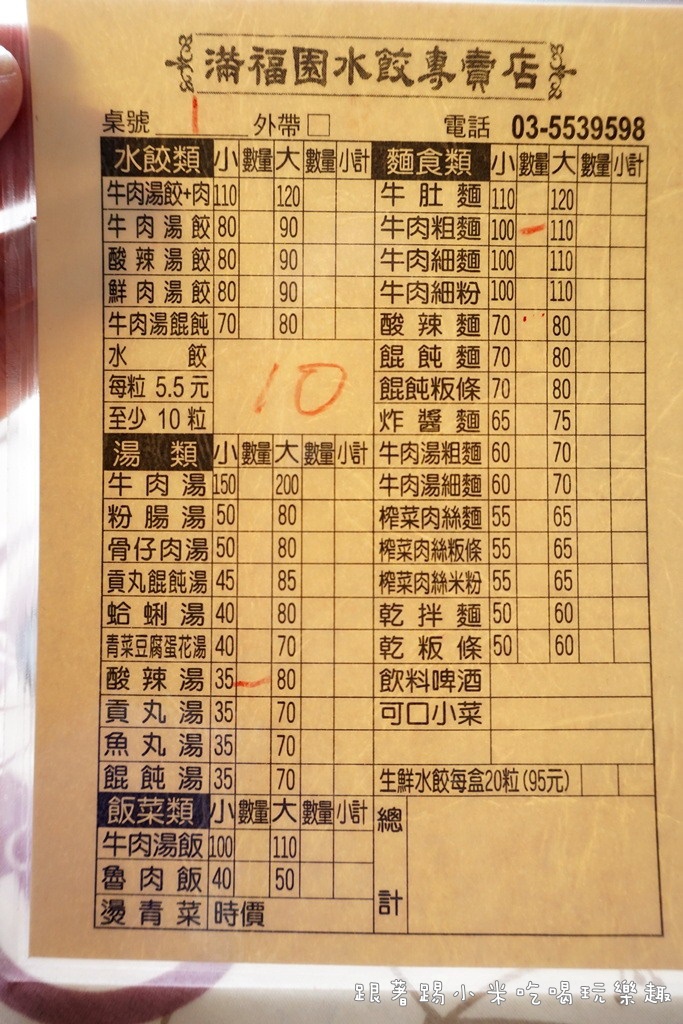 滿福園水餃專賣店
桌號 1 外帶 □ 電話 03-5539598
水餃類 小 數量 大 數量 小計
牛肉湯餃+肉 110 120
牛肉湯餃 80 90
酸辣湯餃 80 90
鮮肉湯餃 80 90
牛肉湯餛飩 70 80
水餃
每粒 5.5 元
至少 10 粒
10
湯類 小 數量 大 數量 小計
牛肉湯 150 200
粉腸湯 50 80
骨仔肉湯 50 80
貢丸餛飩湯 45 85
蛤蜊湯 40 80
青菜豆腐蛋花湯 40 70
酸辣湯 35 一 80
貢丸湯 35 70
魚丸湯 35 70
餛飩湯 35 70
飯菜類 小 數量 大 數量 小計
牛肉湯飯 100 110
魯肉飯 40 50
燙青菜 時價
麵食類 小 數量 大 數量 小計
牛肚麵 110 120
牛肉粗麵 100 一 110
牛肉細麵 100 110
牛肉細粉 100 110
酸辣麵 70 80
餛飩麵 70 80
餛飩粄條 70 80
炸醬麵 65 75
牛肉湯粗麵 60 70
牛肉湯細麵 60 70
榨菜肉絲麵 55 65
榨菜肉絲粄條 55 65
榨菜肉絲米粉 55 65
乾拌麵 50 60
乾粄條 50 60
飲料啤酒
可口小菜
生鮮水餃每盒20粒(95元)
總計
跟著踢小米吃喝玩樂趣